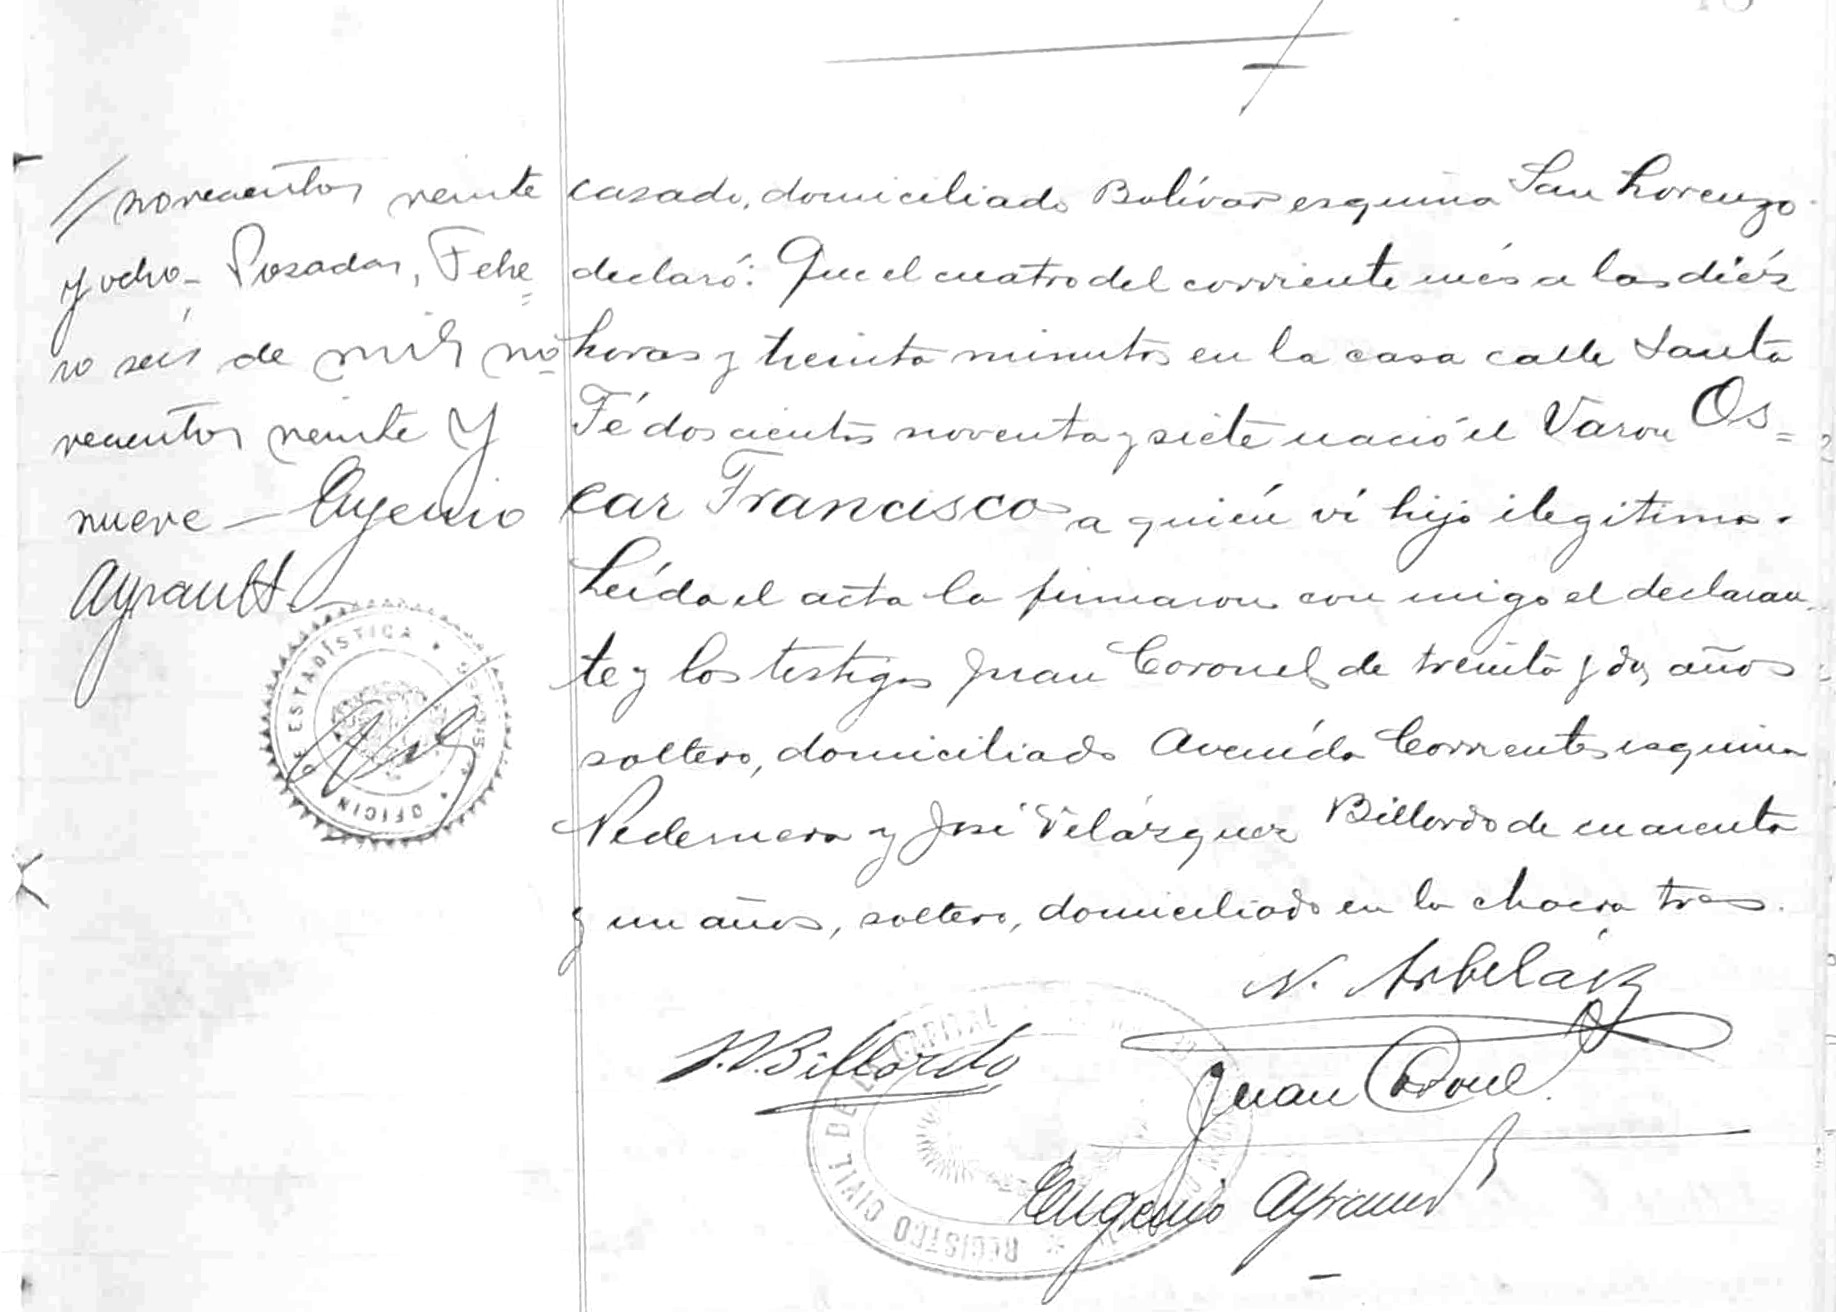 //novecientos veinte
y ocho - Posadas, Febre=
ro seis de mil no=
vecientos veinte y
nueve - Eugenio
Ayrault.
casado, domiciliado Bolívar esquina San Lorenzo
declaró: Que el cuatro del corriente més a las diéz
horas y treinta minutos en la casa calle Santa
Fé doscientos noventa y siete nació el Varon Os=
car Francisco a quién ví hijo ilegítimo.
Leída el acta la firmaron con migo el declaran
te y los testigos Juan Coronel de treinta y dos años
soltero, domiciliado Avenida Corrientes esquina
Pedernera y José Velázquez Billordo de cuarenta
y un años, soltero, domiciliado en la chacra tres.
N. Arbeláiz
J.V. Billordo
Juan Coronel
Eugenio Ayrault
OFICINA DE ESTADÍSTICA
REGISTRO CIVIL DE LA CAPITAL